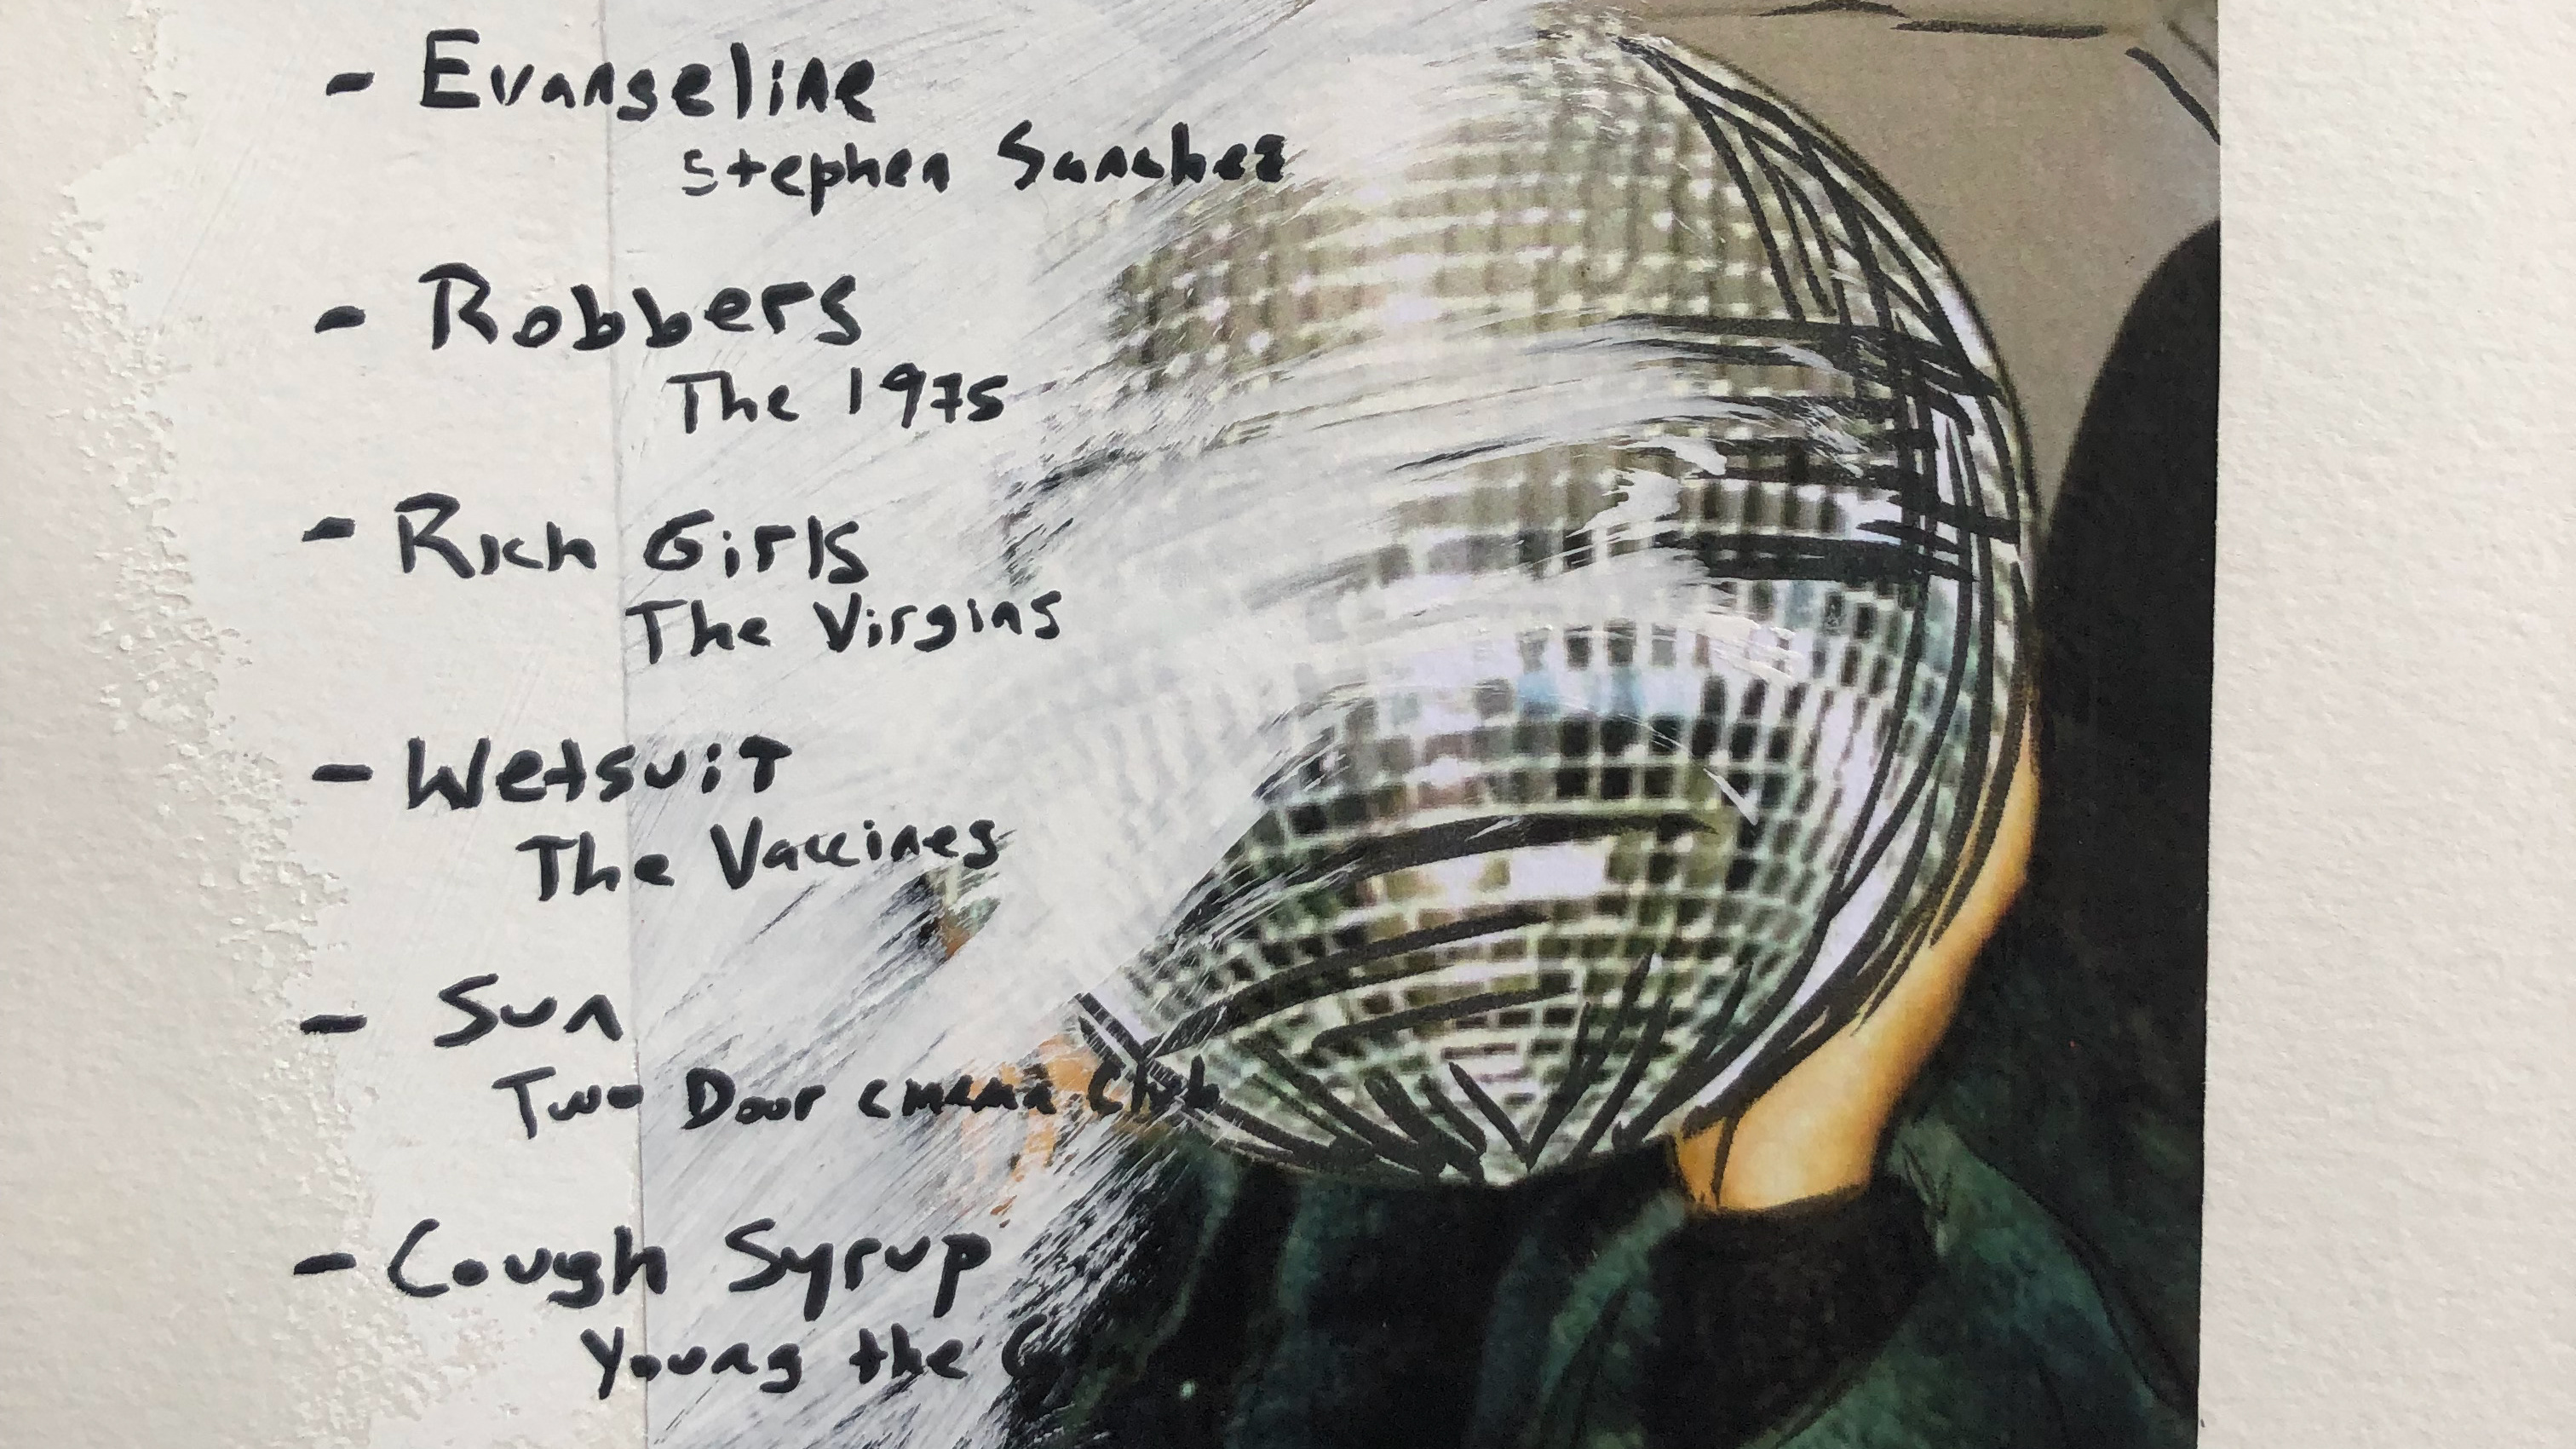 - Evangeline
Stephen Sanchez
- Robbers
The 1975
- Rich Girls
The Virgins
- Wetsuit
The Vaccines
- Sun
Two Door Cinema Club
- Cough Syrup
Young the